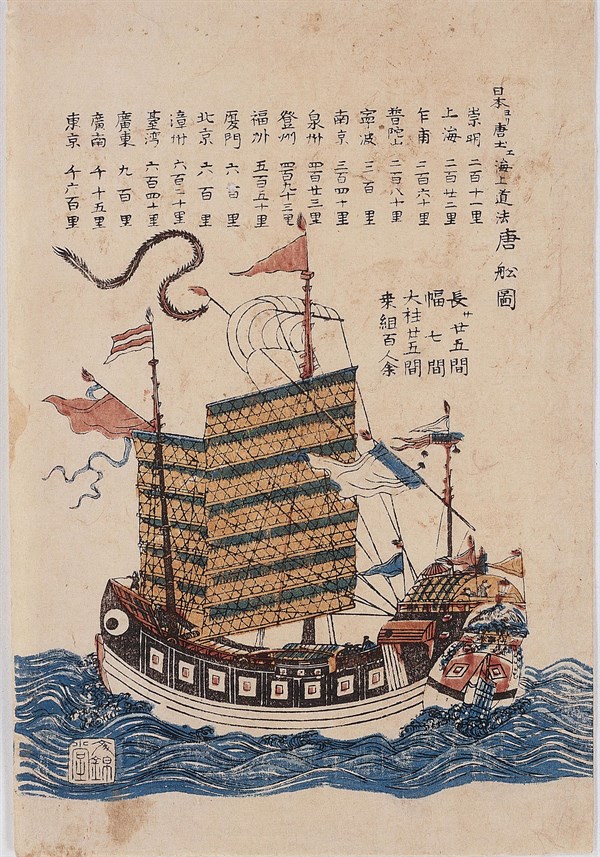 日本ヨリ唐土エ海上道法
唐舩圖
崇明 二百十一里
上海 二百廿二里
乍甫 二百六十里
普陀山 二百八十里
寧波 三百里
南京 三百四十里
泉州 四百廿三里
登州 四百九十三里
福州 五百五十里
厦門 六百里
北京 六百里
漳州 六百二十里
臺湾 六百四十里
廣東 九百里
廣南 千十五里
東京 千六百里
長サ廿五間
幅七間
大柱廿五間
乗組百人余